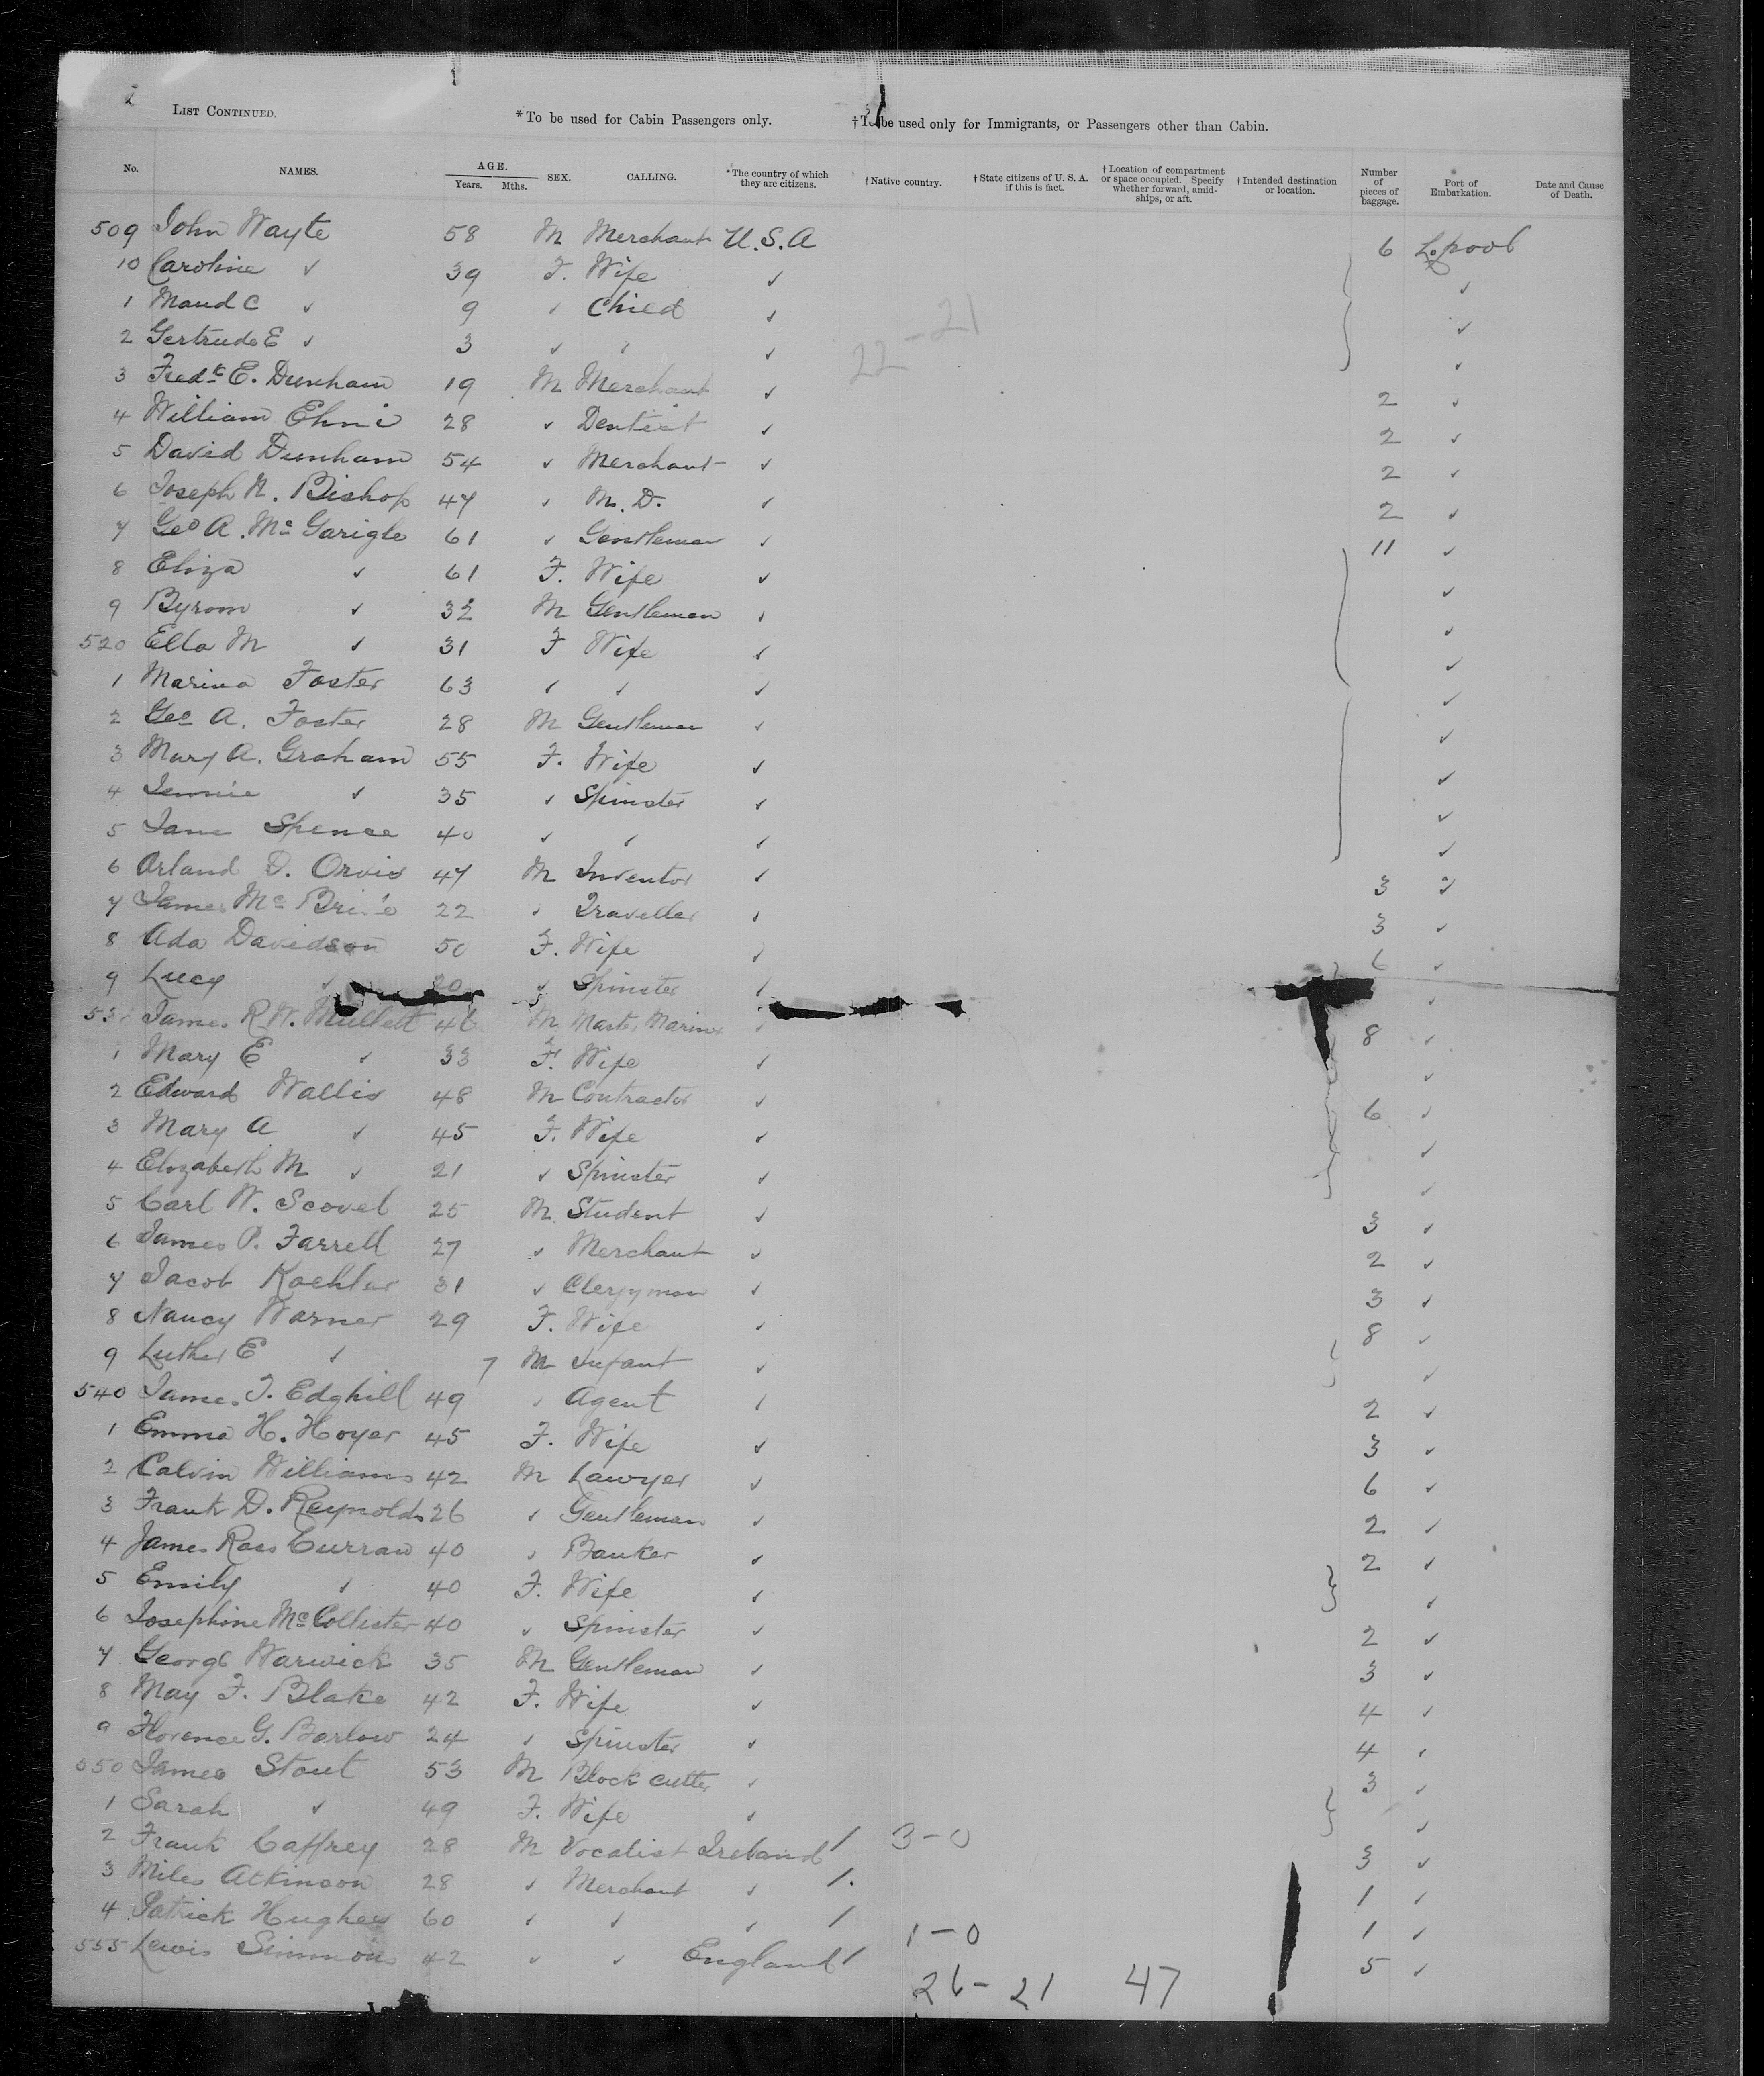 2
LIST CONTINUED. * To be used for Cabin Passengers only. † To be used only for Immigrants, or Passengers other than Cabin.
No. NAMES. AGE. Years. Mths. SEX. CALLING. * The country of which they are citizens. † Native country. † State citizens of U. S. A. if this is fact. † Location of compartment or space occupied. Specify whether forward, amid-ships, or aft. † Intended destination or location. Number of pieces of baggage. Port of Embarkation. Date and Cause of Death.
509 John Wayte 58 M Merchant U.S.A 6 L.pool
10 Caroline ✓ 39 F. Wife ✓ ✓
1 Maud C ✓ 9 ✓ Child ✓ ✓
2 Gertrude E ✓ 3 ✓ ✓ ✓ 22-21 ✓
3 Fredk E. Dunham 19 M Merchant ✓ 2 ✓
4 William Ehni 28 ✓ Dentist ✓ 2 ✓
5 David Dunham 54 ✓ Merchant ✓ 2 ✓
6 Joseph N. Bishop 47 ✓ M.D. ✓ 2 ✓
7 Geo A. Mc Garigle 61 ✓ Gentleman ✓ 11 ✓
8 Eliza ✓ 61 F. Wife ✓ ✓
9 Byrom ✓ 32 M Gentleman ✓ ✓
520 Ella M ✓ 31 F Wife ✓ ✓
1 Marina Foster 63 ✓ ✓ ✓ ✓
2 Geo A. Foster 28 M Gentleman ✓ ✓
3 Mary A. Graham 55 F. Wife ✓ ✓
4 Jennie ✓ 35 ✓ Spinster ✓ ✓
5 Jane Spence 40 ✓ ✓ ✓ ✓
6 Orland D. Orvis 47 M Inventor ✓ 3 ✓
7 James Mc 22 ✓ Traveller ✓ 3 ✓
8 Ada Davidson 50 F. Wife ✓ 6 ✓
9 Lucy ✓ 20 ✓ Spinster ✓ ✓
53 James R.W. Mullett 46 M Master Mariner ✓ 8 ✓
1 Mary E ✓ 33 F. Wife ✓ ✓
2 Edward Wallis 48 M Contractor ✓ 6 ✓
3 Mary A ✓ 45 F. Wife ✓ ✓
4 Elizabeth M ✓ 21 ✓ Spinster ✓ ✓
5 Carl W. Scovel 25 M. Student ✓ 3 ✓
6 James P. Farrell 27 ✓ Merchant ✓ 2 ✓
7 Jacob Koehler 31 ✓ Clergyman ✓ 3 ✓
8 Nancy Warner 29 F. Wife ✓ 8 ✓
9 Luther E ✓ 7 M Infant ✓ ✓
540 James T. Edghill 49 ✓ Agent ✓ 2 ✓
1 Emma H. Hoyer 45 F. Wife ✓ 3 ✓
2 Calvin Williams 42 M Lawyer ✓ 6 ✓
3 Frank D. Reynolds 26 ✓ Gentleman ✓ 2 ✓
4 James Ross Curran 40 ✓ Banker ✓ 2 ✓
5 Emily ✓ 40 F. Wife ✓ ✓
6 Josephine McCollister 40 ✓ Spinster ✓ 2 ✓
7 George Warwick 35 M Gentleman ✓ 3 ✓
8 May F. Blake 42 F. Wife ✓ 4 ✓
9 Florence G. Barlow 24 ✓ Spinster ✓ 4 ✓
550 James Stout 53 M Block cutter ✓ 3 ✓
1 Sarah ✓ 49 F. Wife ✓ ✓
2 Frank Caffrey 28 M Vocalist Ireland / 3-0 3 ✓
3 Miles Atkinson 28 ✓ Merchant ✓ /. 1 ✓
4 Patrick Hughes 60 ✓ ✓ ✓ / 1 ✓
555 Lewis Simmons 42 ✓ ✓ England / 1-0 5 ✓
26-21 47